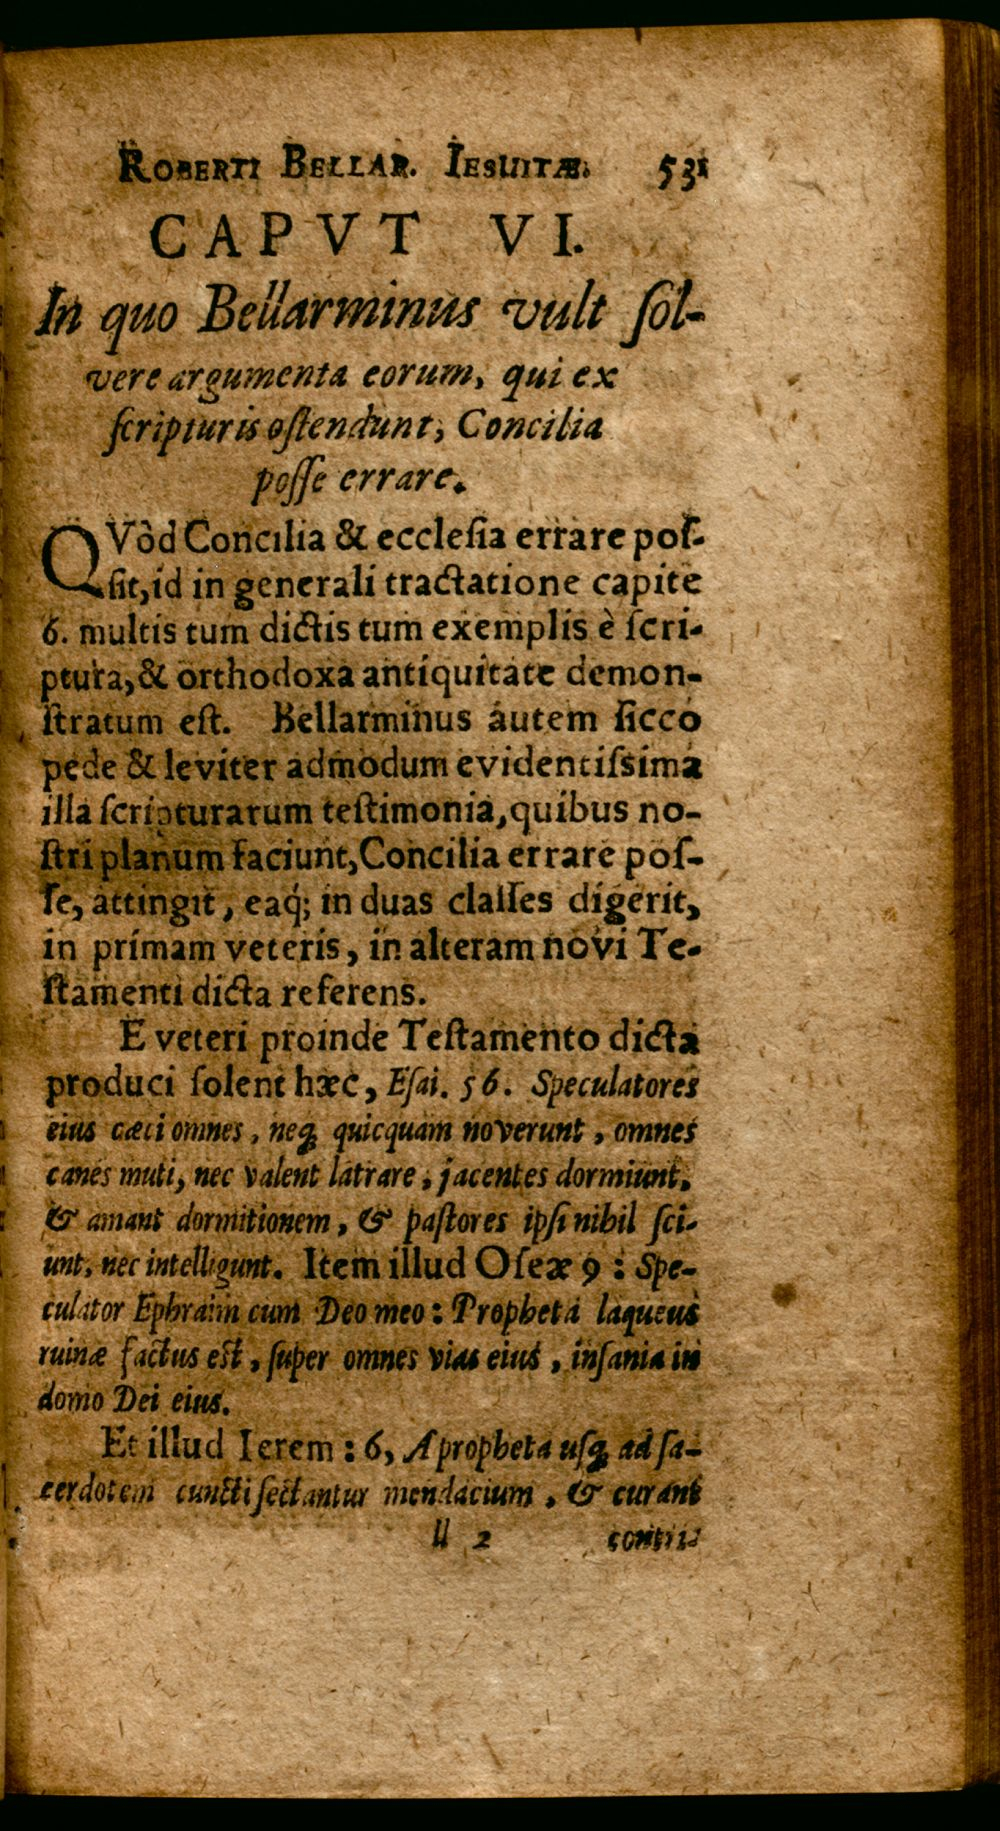 ROBERTI BELLAR. IESUITÆ. 531
CAPVT VI.
In quo Bellarminus vult ſol-
vere argumenta eorum, qui ex
ſcripturis oſtendunt, Concilia
poſſe errare.
QVòd Concilia & eccleſia errare poſ-
ſit, id in generali tractatione capite
6. multis tum dictis tum exemplis è ſcri-
ptura, & orthodoxa antiquitate demon-
ſtratum eſt. Bellarminus autem ſicco
pede & leviter admodum evidentiſsima
illa ſcripturarum teſtimonia, quibus no-
ſtri planum faciunt, Concilia errare poſ-
ſe, attingit, eaq́; in duas claſſes digerit,
in primam veteris, in alteram novi Te-
ſtamenti dicta referens.
E veteri proinde Teſtamento dicta
produci ſolent hæc, Eſai. 56. Speculatores
eius cæci omnes, neq; quicquam noverunt, omnes
canes muti, nec valent latrare, jacentes dormiunt,
& amant dormitionem, & paſtores ipſi nihil ſci-
unt, nec intelligunt. Item illud Oſeæ 9: Spe-
culator Ephraim cum Deo meo: Propheta laqueus
ruinæ factus eſt, ſuper omnes vias eius, inſania in
domo Dei eius.
Et illud Ierem: 6, A propheta uſq; ad ſa-
cerdotem cuncti ſectantur mendacium, & curant
ll 2 contri-